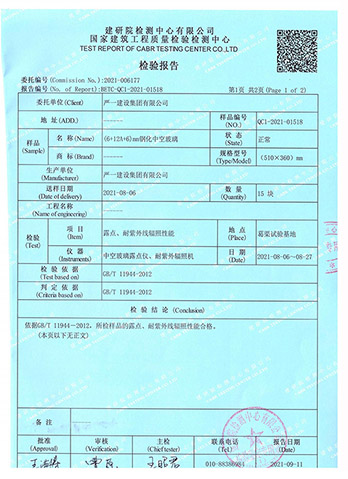 建研院检测中心有限公司
国家建筑工程质量检验检测中心
TEST REPORT OF CABR TESTING CENTER CO.,LTD
检验报告
委托编号(Commission No.):2021-006177
报告编号(No. of Report):BETC-QC1-2021-01518 第1页 共2页(Page 1 of 2)
委托单位(Client) 严一建设集团有限公司
地 址(ADD.) ———— 样品编号(NO.) QC1-2021-01518
样品(Sample) 名 称(Name) (6+12A+6)mm钢化中空玻璃 状 态(State) 正常
商 标(Brand) ———— 规格型号(Type/Model) (510×360) mm
生产单位(Manufacturer) 严一建设集团有限公司
送样日期(Date of delivery) 2021-08-06 数 量(Quantity) 15 块
工程名称(Name of engineering) ————
检验(Test) 项 目(Item) 露点、耐紫外线辐照性能 地 点(Place) 葛渠试验基地
仪 器(Instruments) 中空玻璃露点仪、耐紫外辐照机 日 期(Date) 2021-08-06~08-27
检 验 依 据(Test based on) GB/T 11944-2012
判 定 依 据(Criteria based on) GB/T 11944-2012
检 验 结 论 (Conclusion)
依据GB/T 11944-2012，所检样品的露点、耐紫外线辐照性能合格。
(本页以下无正文)
备 注 ————
批准(Approval) 审核(Verification) 主检(Chief tester) 联系电话(Tel.) 报告日期(Date)
010-88386984 2021-09-11